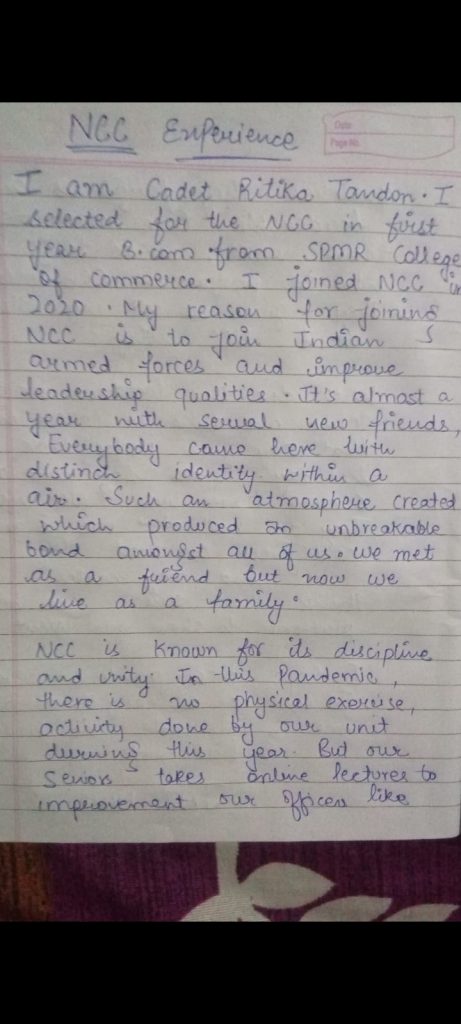 NCC Experience
Date:
Page No.
I am Cadet Ritika Tandon. I
selected for the NCC in first
year B.com from SPMR College
of commerce. I joined NCC in
2020. My reason for joining
NCC is to join Indian
armed forces and improve
leadership qualities. It's almost a
year with several new friends,
Everybody came here with
distinch identity within a
air. Such an atmosphere created
which produced an unbreakable
bond amongst all of us. we met
as a friend but now we
live as a family.
NCC is known for its discipline
and unity. In this Pandemic,
there is no physical exercise,
activity done by our unit
deurning this year. But our
Seniors takes online lectures to
improvement our officer like